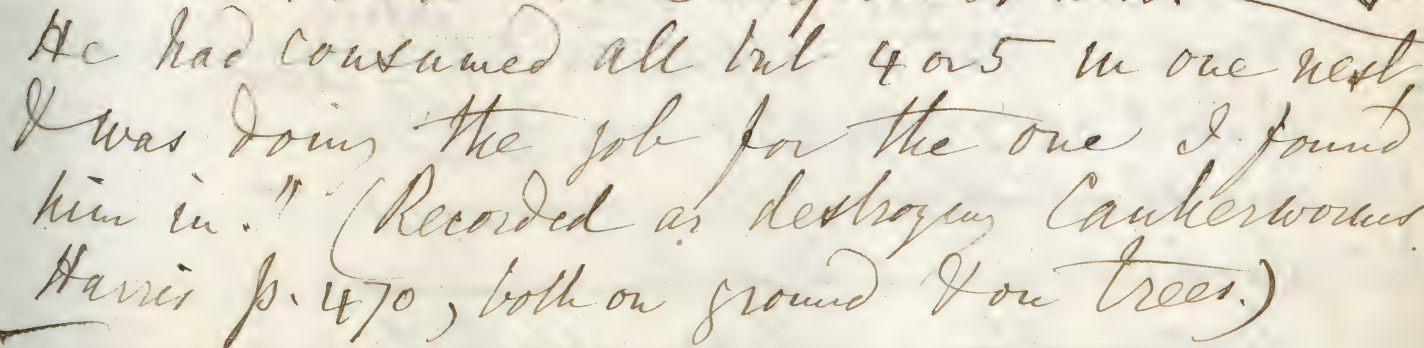 He had consumed all but 4 or 5 in one nest,
& was doing the job for the one I found
him in." (Recorded as destroying Cankerworms
Harris p. 470, both on ground & on trees.)